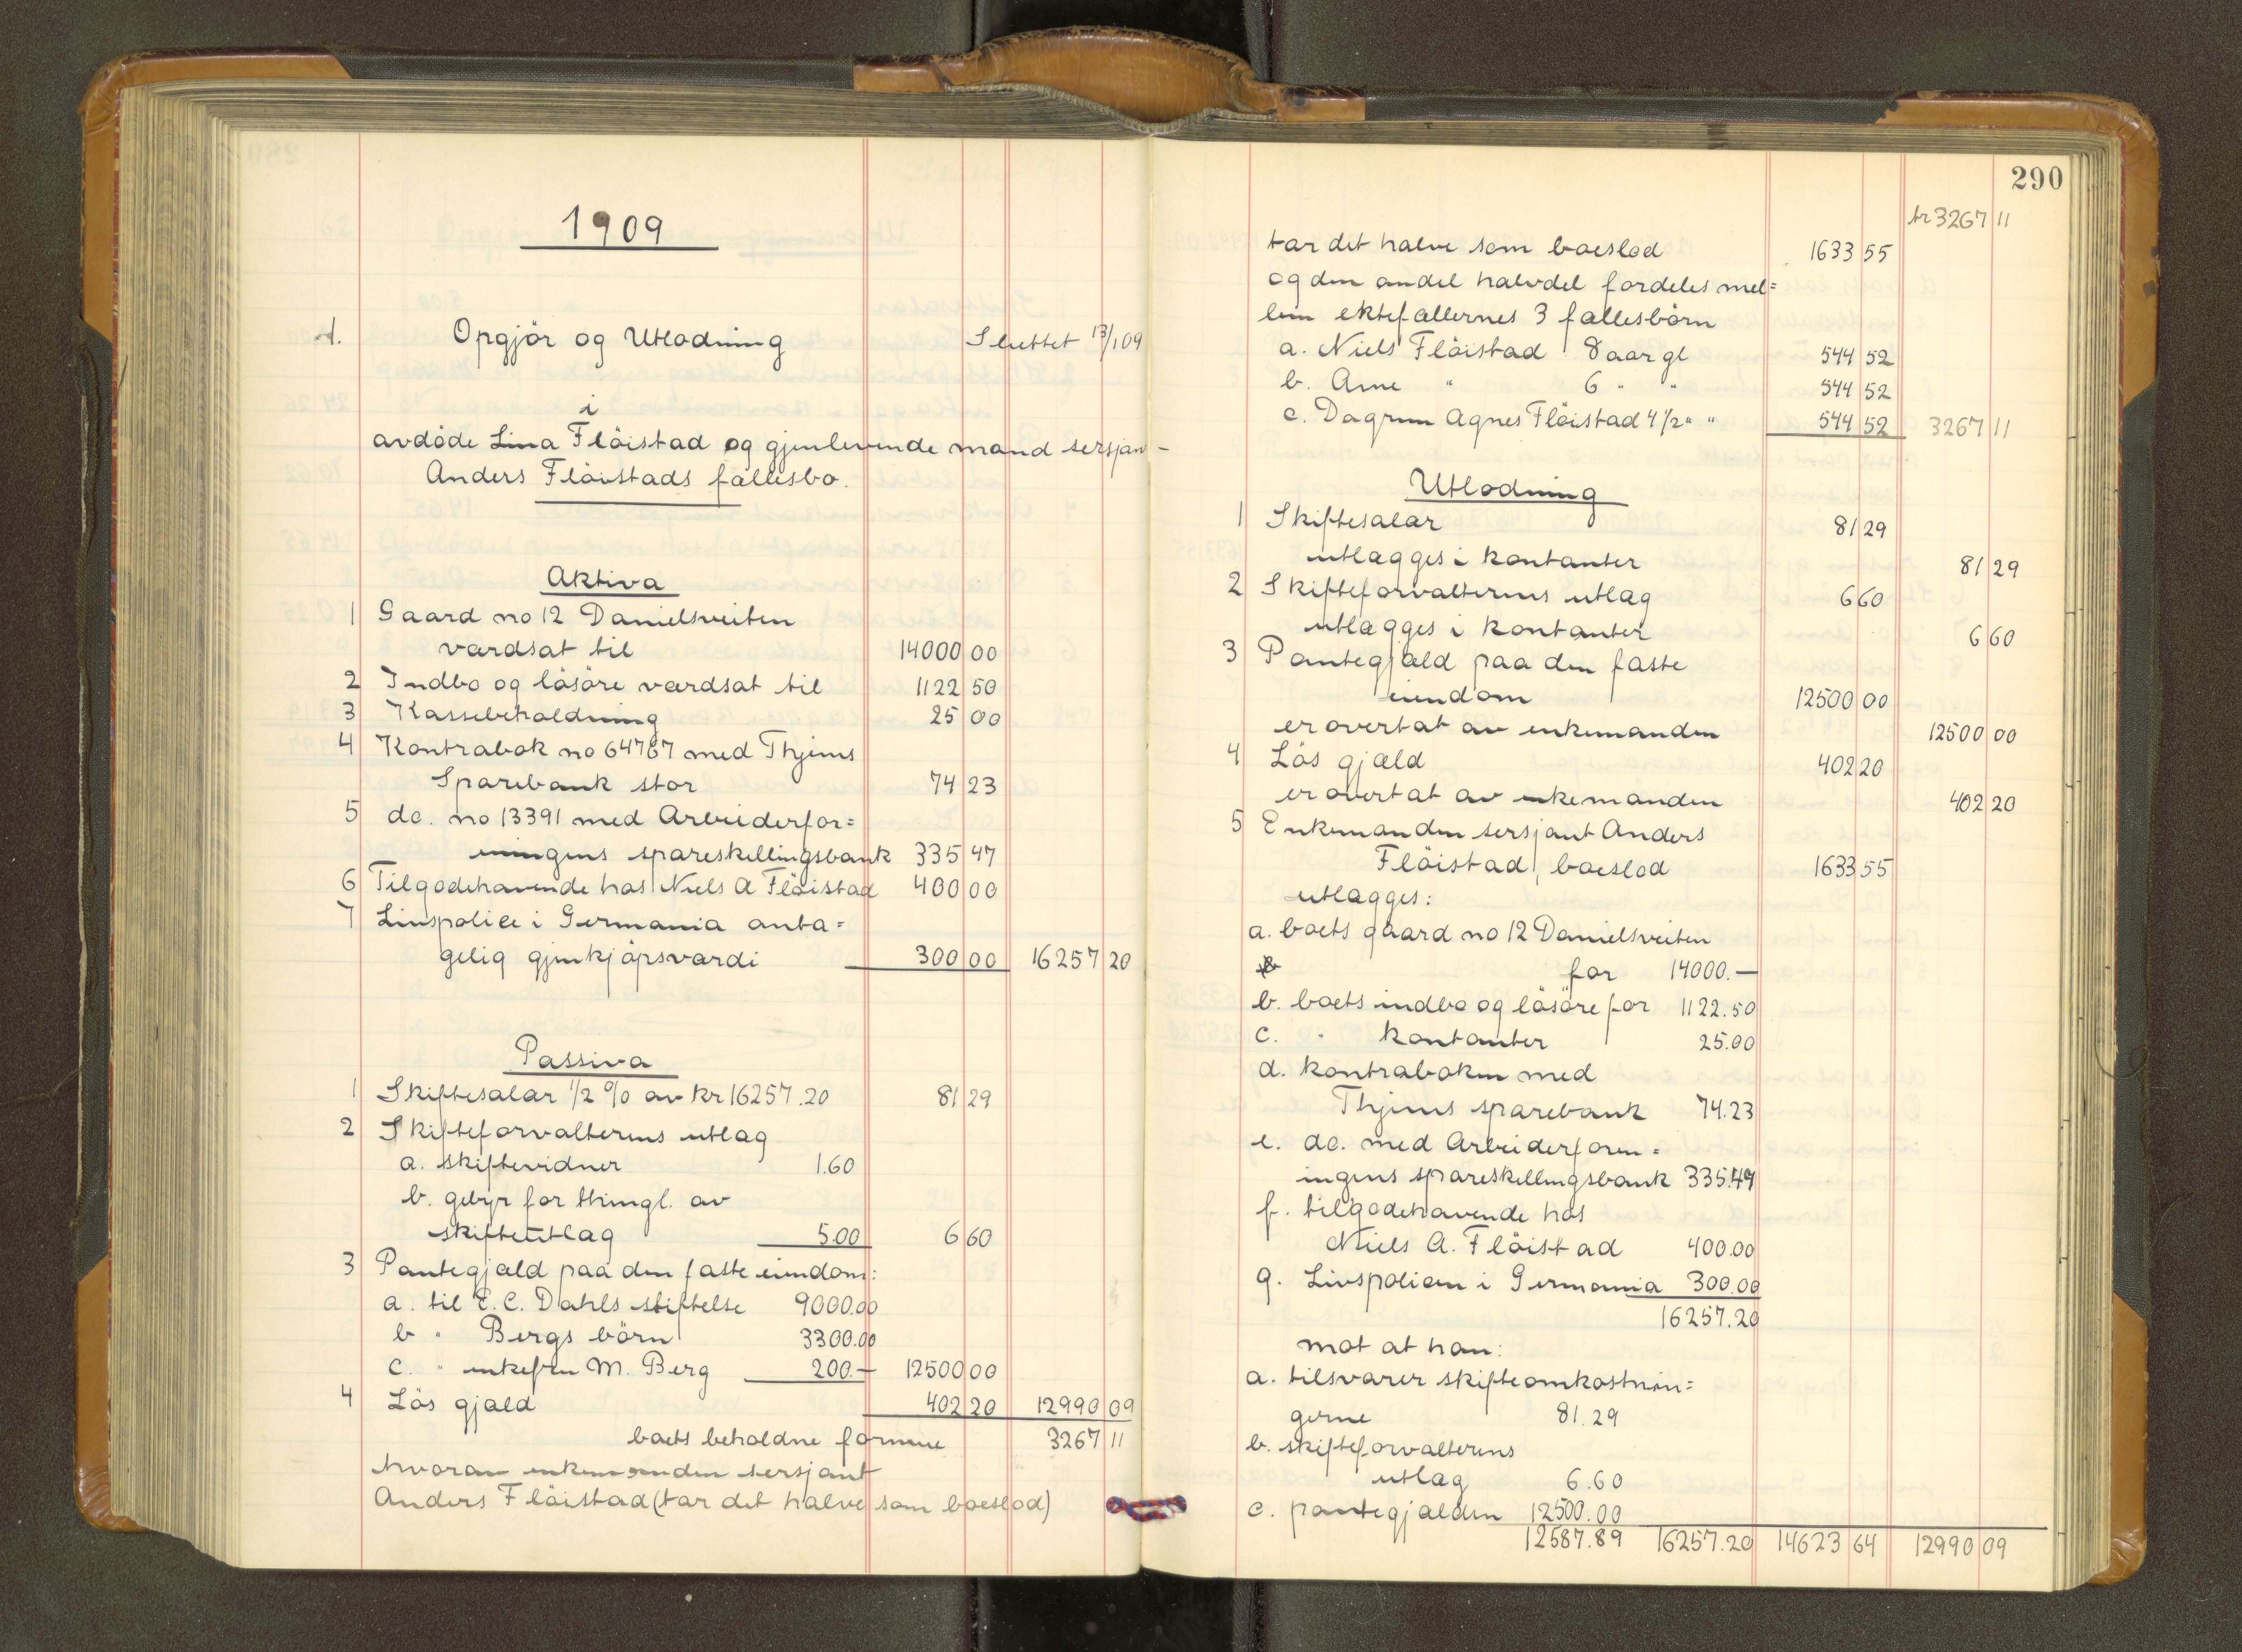 1909
1. Opgjör og Utlodning Sluttet 13/1 09
i
avdöde Lina Flöistad og gjenlevende mand sersjan-
Anders Flöistads fællesbo.
Aktiva
1 Gaard no 12 Danielsveiten
værdsat til 14000 00
2 Indbo og lösöre værdsat til 1122 50
3 Kassebeholdning 25 00
4 Kontrabok no 64767 med Thjems
Sparebank stor 74 23
5 do. no 13391 med Arbeiderfor=
eningens spareskillingsbank 335 47
6 Tilgodehavende hos Niels A Flöistad 400 00
7 Livspolice i Germania anta=
gelig gjenkjöpsværdi 300 00 16257 20
Passiva
1 Skiftesalær 1/2 % av kr 16257.20 81 29
2 Skifteforvalterens utlæg
a. skiftevidner 1.60
b. gebyr for thingl. av
skifteutlæg 5.00 6 60
3 Pantegjæld paa den faste eiendom:
a. til E. C. Dahls stiftelse 9000.00
b " Bergs börn 3300.00
c. " enkefru M. Berg 200.— 12500 00
4 Lös gjæld 402 20 12990 09
boets beholdne formue 3267 11
hvorav enkemanden sersjant
Anders Flöistad (tar det halve som boeslod)
290
kr 3267 11
tar det halve som boeslod 1633 55
og den andel halvdel fordeles mel=
lem ektefællernes 3 fællesbörn
a. Niels Flöistad 8 aar gl 544 52
b. Arne " 6 " " 544 52
c. Dagrun Agnes Flöistad 4 1/2 " " 544 52 3267 11
Utlodning
1 Skiftesalær 81 29
utlægges i kontanter 81 29
2 Skifteforvalterens utlæg 6 60
utlægges i kontanter 6 60
3 Pantegjæld paa den faste
eiendom 12500 00
er overtat av enkemanden 12500 00
4 Lös gjæld 402 20
er overtat av enkemanden 402 20
5 Enkemanden sersjant Anders
Flöistad, boeslod 1633 55
utlægges:
a. boets gaard no 12 Danielsveiten
for 14000.—
b. boets indbo og lösöre for 1122.50
c. " kontanter 25.00
d. kontraboken med
Thjems sparebank 74.23
e. do. med Arbeiderforen=
ingens spareskillingsbank 335.47
f. tilgodehavende hos
Niels A. Flöistad 400.00
g. Livspolicen i Germania 300.00
16257.20
mot at han:
a. tilsvarer skifteomkostnin=
gerne 81.29
b. skifteforvalterens
utlæg 6.60
c. pantegjælden 12500.00
12587.89 16257.20 14623 64 12990 09